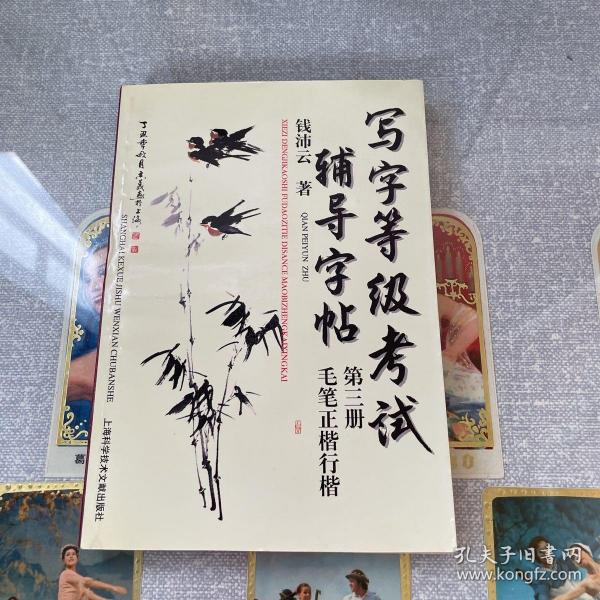 写字等级考试
辅导字帖
第三册
毛笔正楷行楷
钱沛云 著
QIAN PEIYUN ZHU
XIEZI DENGJIKAOSHI FUDAOZITIE DISANCE MAOBIZHENGKAIXINGKAI
SHANGHAI KEXUE JISHU WENXIAN CHUBANSHE
上海科学技术文献出版社
葛
孔夫子旧书网
www.kongfz.com